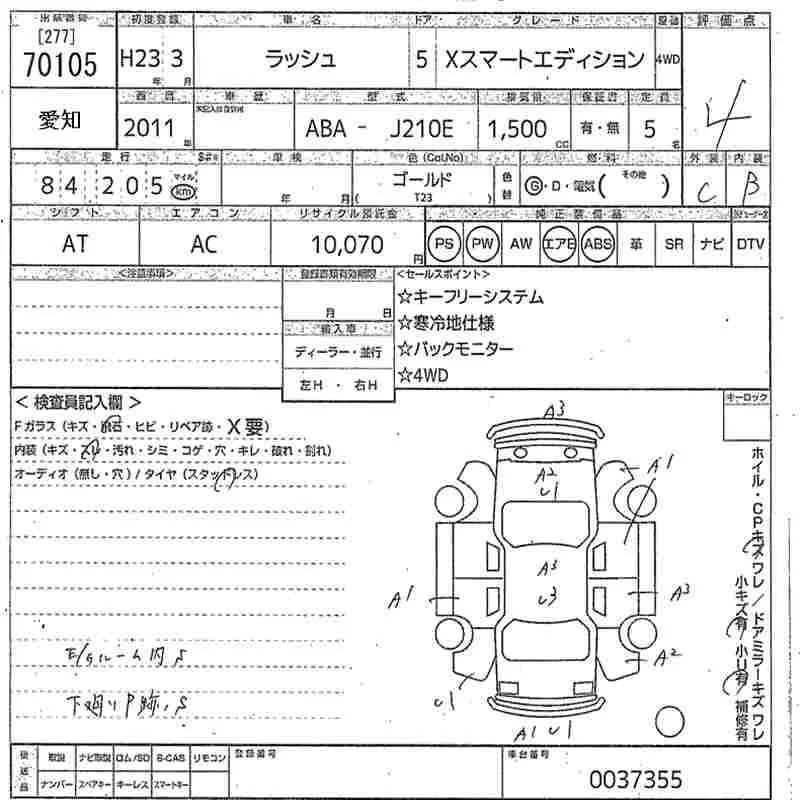 出品番号 初度登録 車名 ドア グレード 駆動 評価点
[277]
70105 H23 3 ラッシュ 5 Xスマートエディション 4WD 4
年 月
愛知 西暦 車歴 型式 排気量 保証書 定員
2011 ABA - J210E 1,500 有・無 5
年 CC 名
走行 S#c 車検 色(Col,No) 燃料 外装 内装
84,205 マイル km 年 月 ゴールド 色替 G・D・電気( その他 ) C B
( T23 )
シフト エアコン リサイクル預託金 純正装備品
AT AC 10,070 円 PS PW AW エアB ABS 革 SR ナビ DTV
<注意事項> 登録書類有効期限 <セールスポイント>
月 日
☆キーフリーシステム
輸入車
☆寒冷地仕様
ディーラー・並行
☆バックモニター
左H ・ 右H
☆4WD
< 検査員記入欄 >
キーロック
Fガラス(キズ・飛石・ヒビ・リペア跡・X要)
内装(キズ・スレ・汚れ・シミ・コゲ・穴・キレ・破れ・割れ)
オーディオ(無し・穴)/タイヤ(スタッドレス)
A3
A2
U1
A1
A3
U3
A1
A3
A2
U1
A1 U1
E/gルーム内S
下廻りP跡、S
ホイル・CPキズワレ/ドアミラーキズワレ
小キズ有 小U有 補修有
後送品 取説 ナビ取説 ロム/SD B-CAS リモコン 登録番号 車台番号
ナンバー スペアキー キーレス スマートキー 0037355